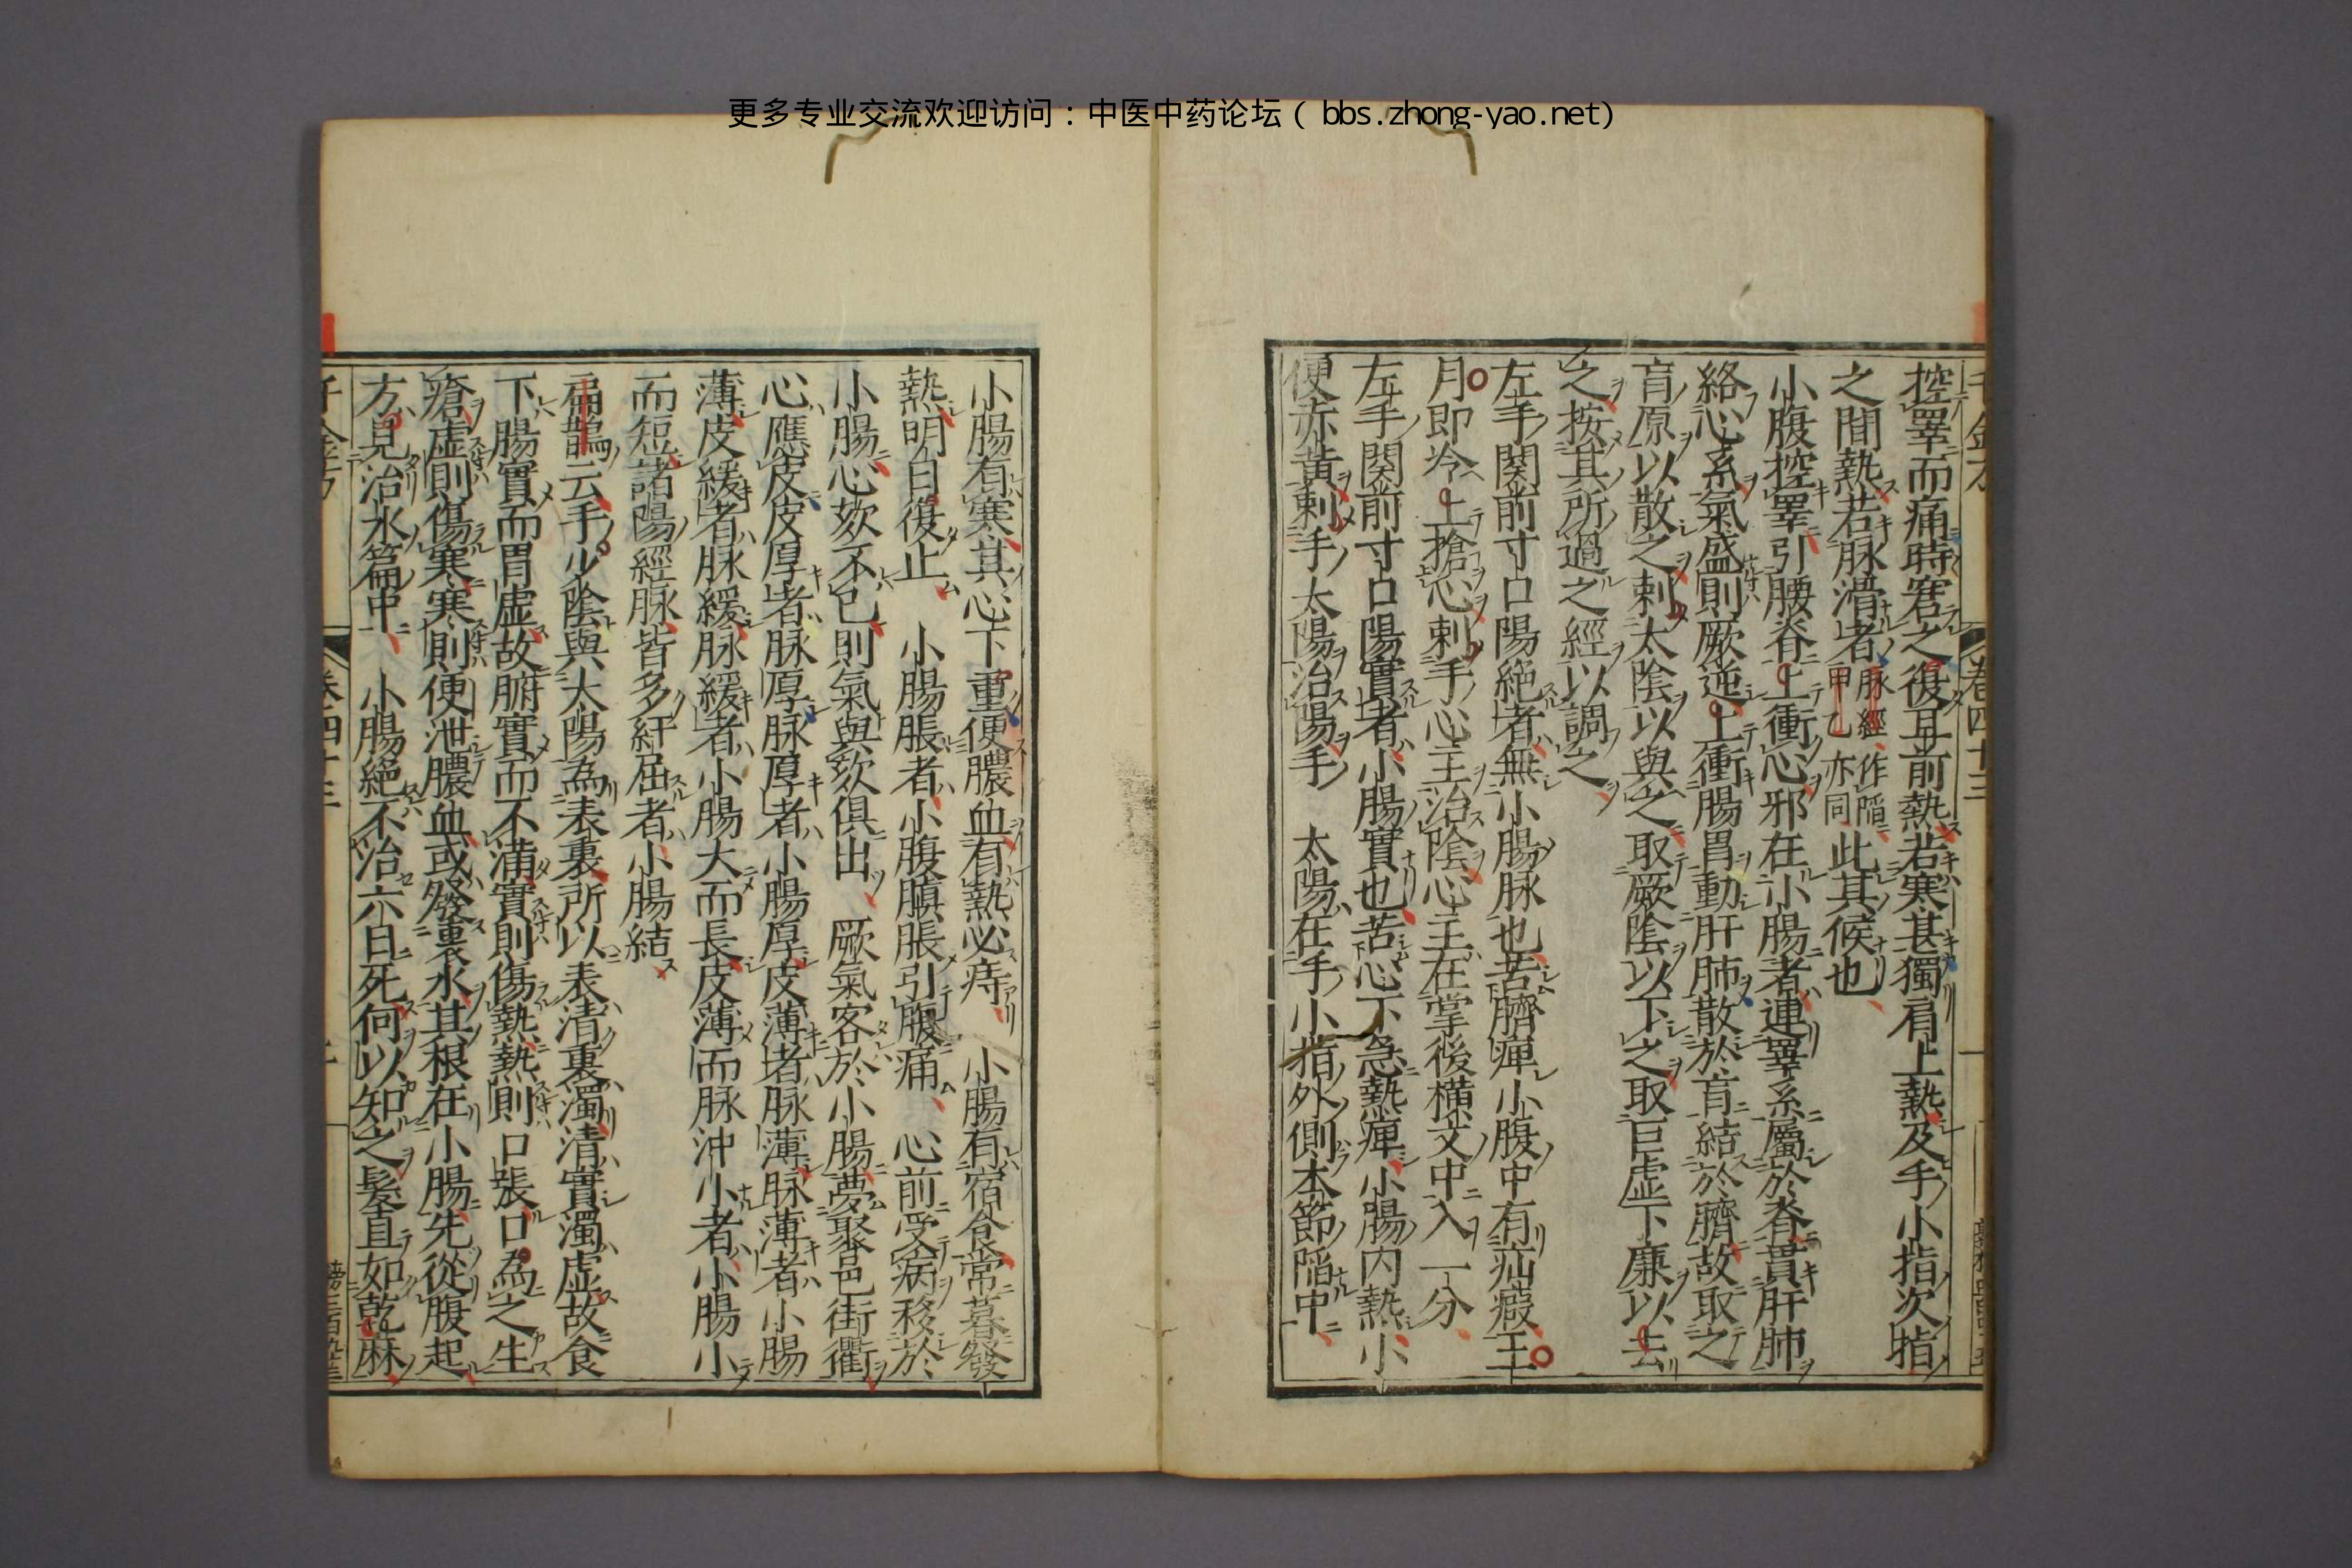 更多专业交流欢迎访问：中医中药论坛（bbs.zhong-yao.net）
控睪而痛時窘之復耳前熱若寒甚獨肩上熱及手小指次指
之間熱若脉滑者脉經甲乙作陷亦同此其候也
小腹控睪引腰脊上衝心邪在小腸者連睪系屬於脊貫肝肺
絡心系氣盛則厥逆上衝腸胃動肝肺散於肓結於臍故取之
肓原以散之刺太陰以與之取厥陰以下之取巨虛下廉以去
之按其所過之經以調之
左手関前寸口陽絶者無小腸脉也苦臍痺小腹中有疝瘕王
月即冷上搶心刺手心主治陰心主在掌後横文中入一分
左手関前寸口陽實者小腸實也苦心下急熱痺小腸内熱小
便赤黃刺手太陽治陽手太陽在手小指外側本節陷中
小腸有寒其心下重便膿血有熱必痔 小腸有宿食常暮發
熱明日復止 小腸脹者小腹䐜脹引腹痛 心前受病移於
小腸心欬不已則氣與欬俱出 厥氣客於小腸夢聚邑街衢
心應皮皮厚者脉厚脉厚者小腸厚皮薄者脉薄脉薄者小腸
薄皮緩者脉緩脉緩者小腸大而長皮薄而脉沖小者小腸小
而短諸陽經脉皆多紆屈者小腸結
扁鵲云手少陰與太陽為表裏所以表清裏濁清實濁虛故食
下腸實而胃虛故腑實而不滿實則傷熱熱則口張口為之生
瘡虛則傷寒寒則便泄膿血或發裏水其根在小腸先從腹起
方見治水篇中 小腸絶不治六日死何以知之髮直如乾麻
卷四十三